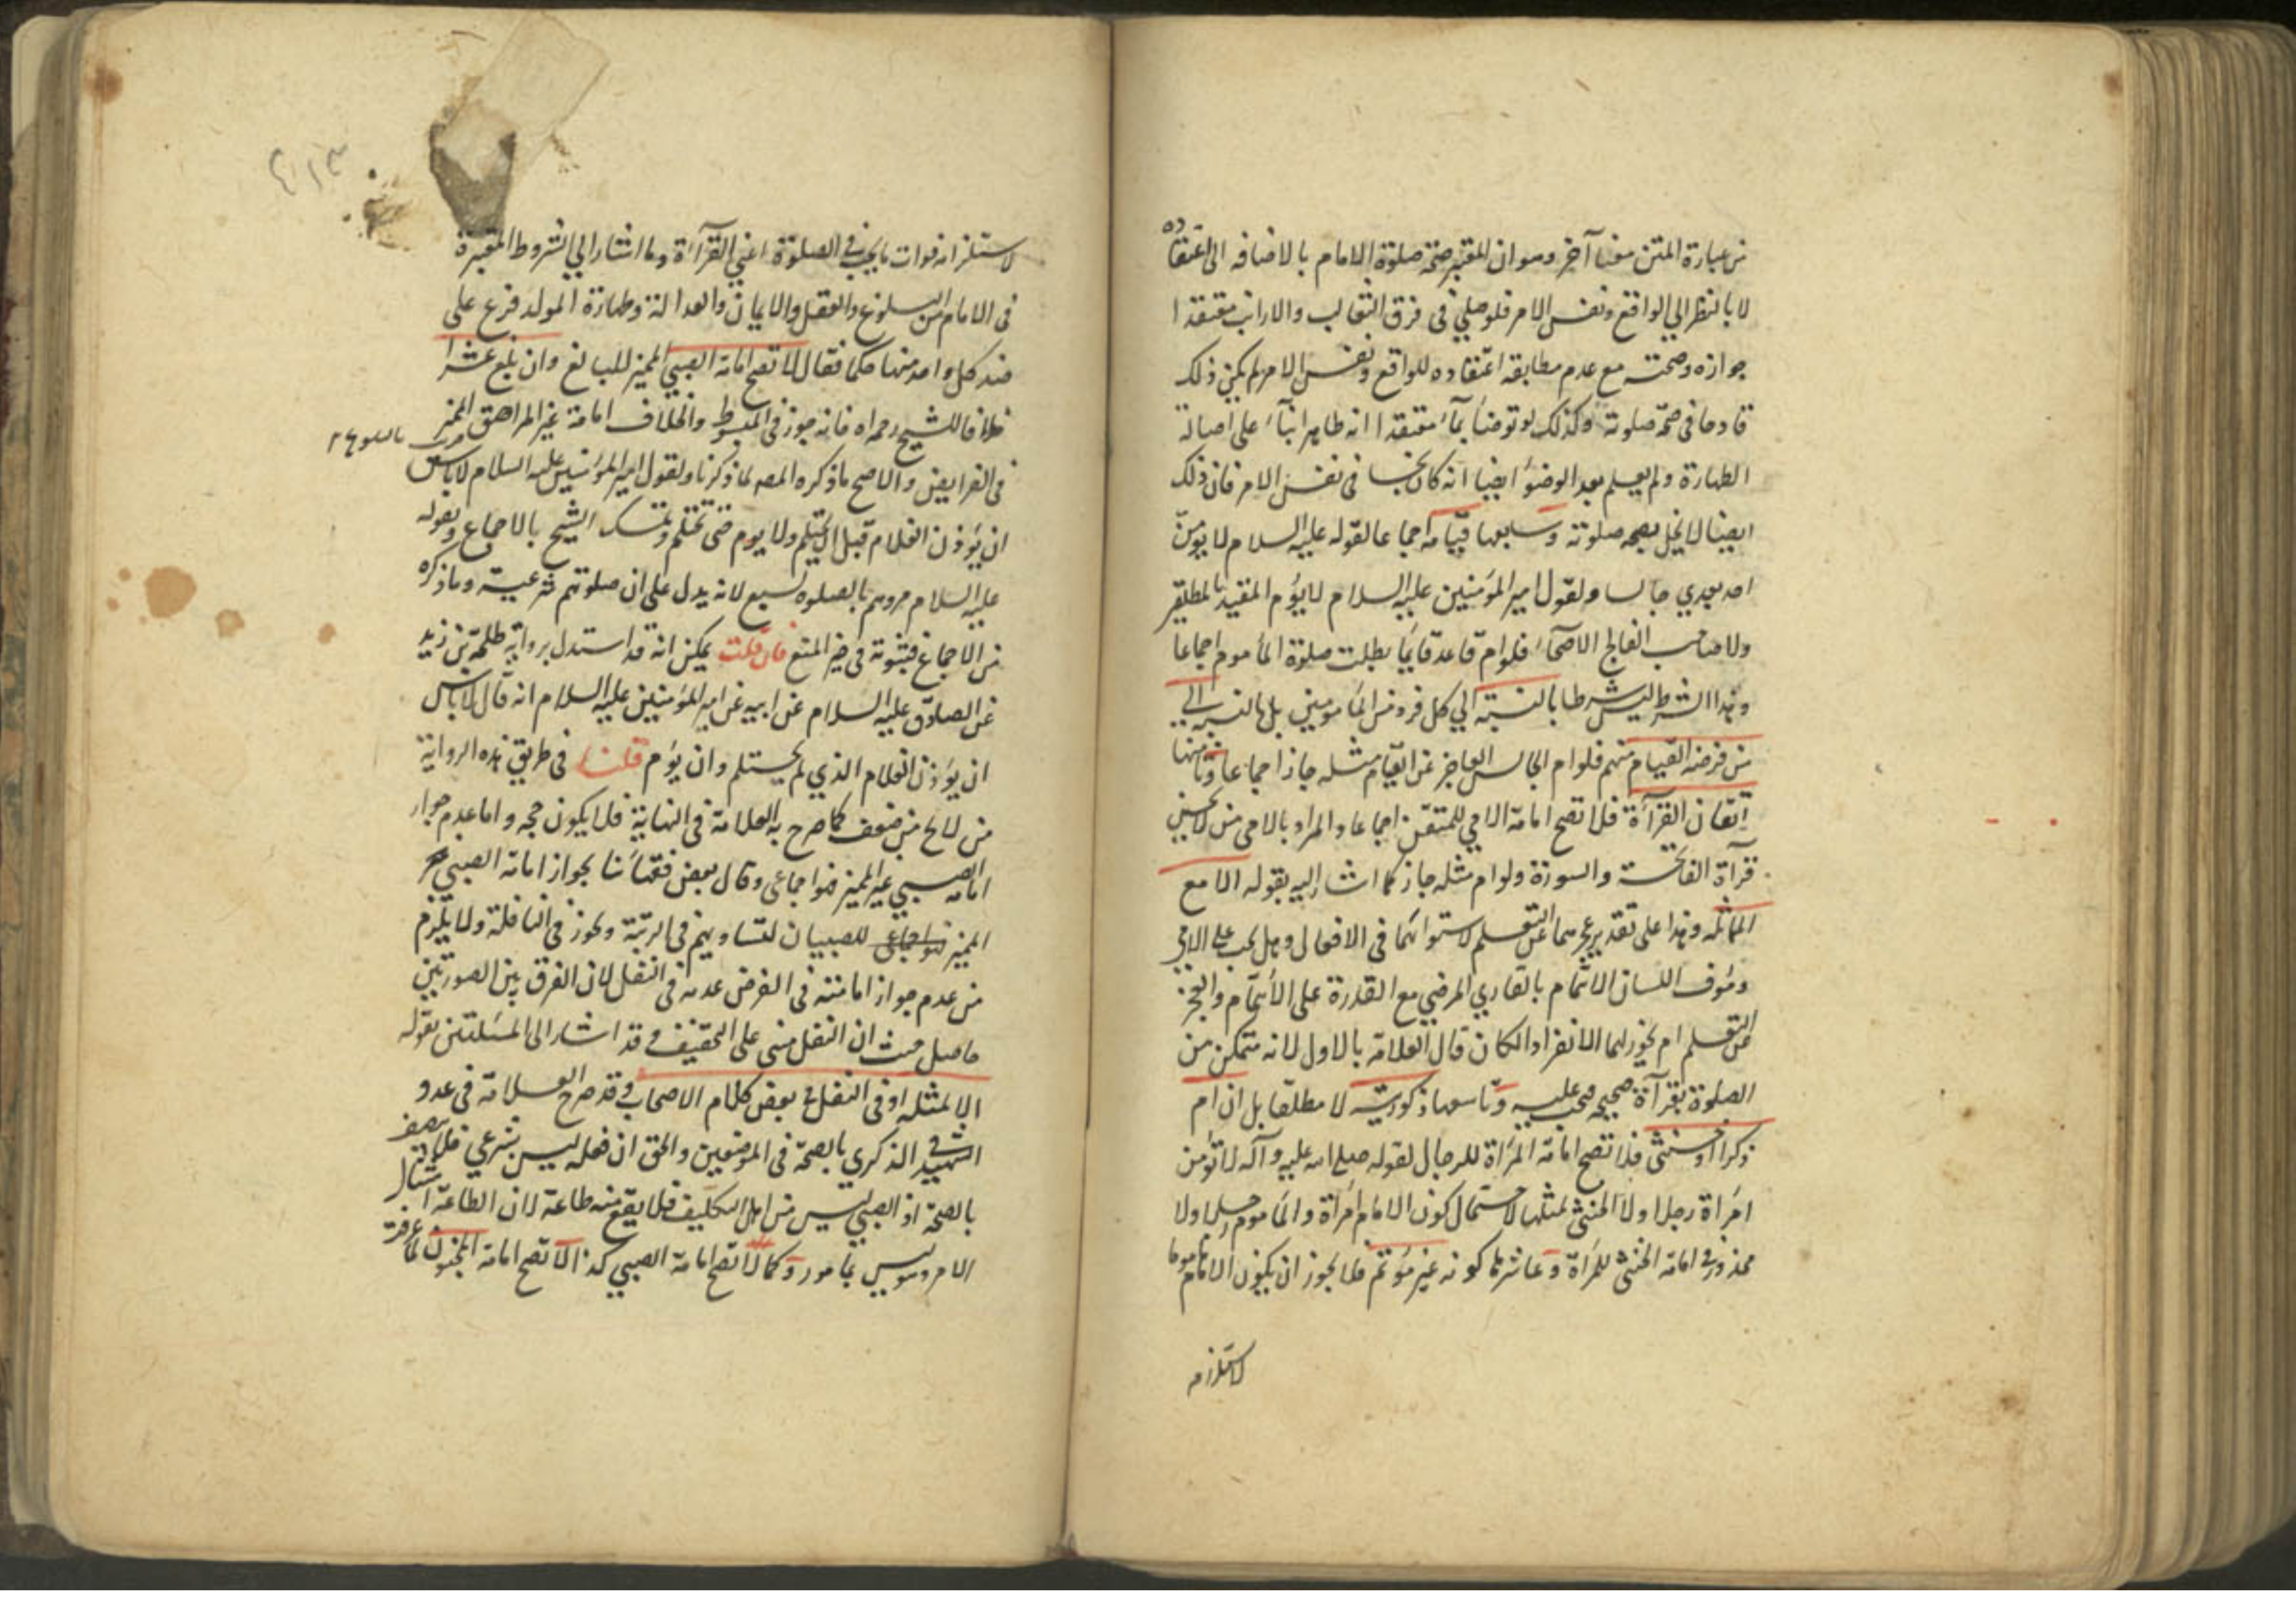 من عبارة المتن معنا آخر وهو ان المعتبر صحة صلوة الامام بالاضافه الى اعتقاده
لا بالنظر الى الواقع ونفس الامر فلو صلى فى فرق الثعالب والارانب معتقدا
جوازه وصحته مع عدم مطابقه اعتقاده للواقع ونفس الامر لم يكن ذلك
قادحا فى صحة صلوته وكذلك لو توضأ بمآء معتقدا انه طاهر ابنآء على اصالة
الطهارة ولم يعلم بعد الوضوء ايضا انه كان نجسا فى نفس الامر فان ذلك
ايضا لا يخل بصحه صلوته وسابعها قيامه اجماعا لقوله عليه السلام لا يؤمن
احد بعدي جالسا ولقول امير المؤمنين عليه السلام لا يؤم المقيد المطلقين
ولا صاحب الفالج الاصحآء فلو ام قاعد قايما بطلت صلوة المأموم اجماعا
وهذا الشرط ليس شرطا بالنسبة الي كل فرد من المأمومين بل بالنسبة الي
من فرضه القيام منهم فلو ام الجالس العاجز عن القيام مثله جاز اجماعا وثامنها
اتقان القرآءة فلا تصح امامة الامي للمتقن اجماعا والمراد بالامى من لا يحسن
قرآءة الفاتحة والسورة ولو ام مثله جاز كما اشار اليه بقوله الا مع
المماثله وهذا على تقدير عجزهما عن التعلم لاستوائهما فى الافعال وهل يجب على الامي
ومؤف اللسان الائتمام بالقاري المرضي مع القدرة على الائتمام والعجز
عن التعلم ام يجوز لهما الانفراد الكان قال العلامة بالاول لانه متمكن من
الصلوة بقرآءة صحيحه فيجب عليه وتاسعها ذكوريته لا مطلقا بل ان ام
ذكرا او خنثى فلا تصح امامة المرأة للرجال لقوله صلى الله عليه وآله لا تؤمن
امرأة رجلا ولا الخنثى لمثلها لاحتمال كون الامام امرأة والمأموم رجلا ولا
محذور فى امامة الخنثى للمرأة وعاشرها كونه غير مؤتم فلا يجوز ان يكون الامام مأموما
لاستلزامه
لاستلزامه فوات ما يجب فى الصلوة اعني القرآءة ولما اشار الي الشروط المعتبرة
فى الامام من البلوغ والعقل والايمان والعدالة وطهارة المولد فرع على
ضد كل واحد منها حكما فقال لا تصح امامة الصبي المميز للبالغ وان بلغ عشرا
خلافا للشيخ رحمه الله فانه جوز فى المبسوط والخلاف امامة غير المراهق المميز
فى الفرايض والاصح ما ذكره المصه لما ذكرنا ولقول امير المؤمنين عليه السلام لا باس
ان يؤذن الغلام قبل ان يحتلم ولا يوم حتى يحتلم وتمسك الشيخ بالاجماع وبقوله
عليه السلام مروهم بالصلوه لسبع لانه يدل على ان صلوتهم شرعية وما ذكره
من الاجماع فثبوته فى حيز المنع فان قلت يمكن انه قد استدل برواية طلحة بن زيد
عن الصادق عليه السلام عن ابيه عن امير المؤمنين عليه السلام انه قال لا باس
ان يؤذن الغلام الذي لم يحتلم وان يؤم قلنا فى طريق هذه الرواية
من لا يخ من ضعف كما صرح به العلامة فى النهاية فلا يكون حجه واما عدم جواز
امامة الصبي غير المميز فهو اجماعى وقال بعض فقهائنا بجواز امامة الصبي
المميز فهو اجماعى للصبيان لتساويهم فى الرتبة ويجوز فى النافلة ولا يلزم
من عدم جواز امامته فى الفرض عدمه فى النفل لان الفرق بين الصورتين
حاصل حيث ان النفل مبني على التخفيف وقد اشار الى المسئلتين بقوله
الا لمثله او فى النفل فى بعض كلام الاصحاب وقد صرح العلامة فى عد و
الشهيد فى الذكري بالصحة فى الموضعين والحق ان فعله ليس بشرعي فلا يتصف
بالصحة اذ الصبي ليس من اهل التكليف فلا يقع منه طاعة لان الطاعة امتثال
الامر وليس بمأمور وكما لا تصح امامة الصبي كذا لا تصح امامة المجنون لما عرفت